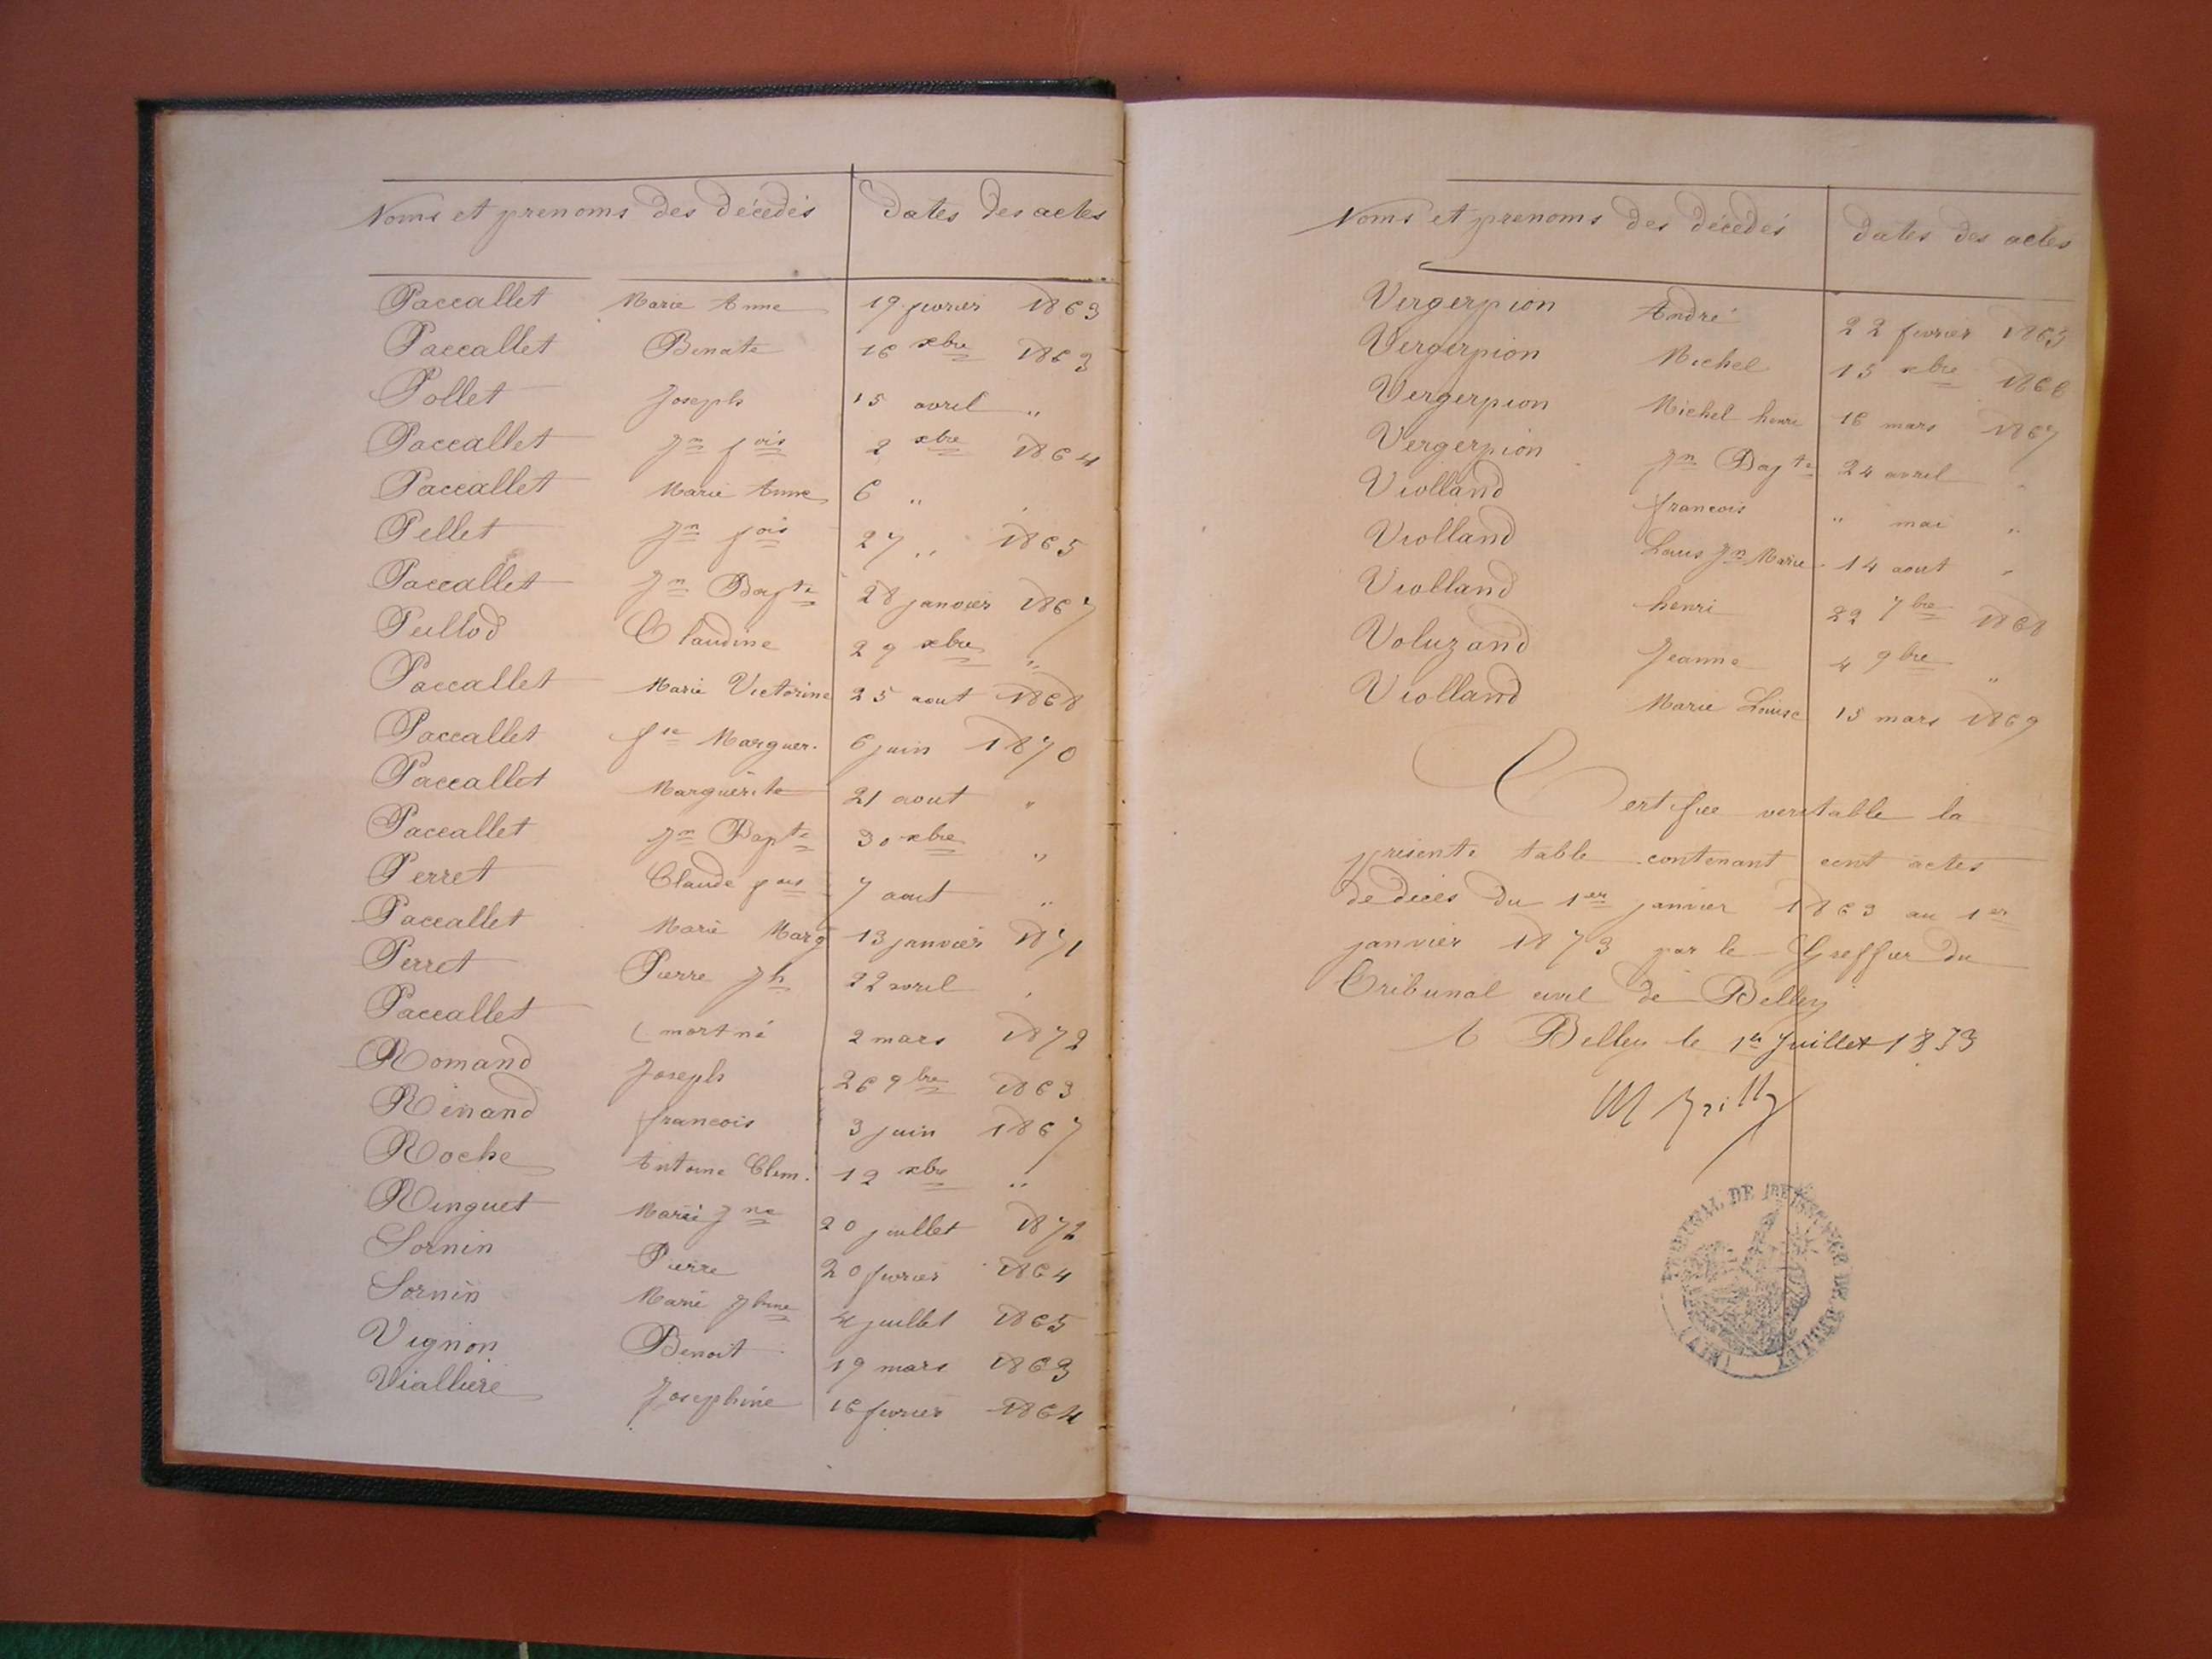 Noms et prenoms des décédés Dates des actes
Paccallet Marie Anne 19 fevrier 1863
Paccallet Benoite 16 xbre 1863
Pollet Joseph 15 avril "
Paccallet Jn fois 2 xbre 1864
Paccallet Marie Anne 6 " "
Pellet Jn fois 27 " 1865
Paccallet Jn Bapte 28 janvier 1867
Peillod Claudine 29 xbre "
Paccallet Marie Victorine 25 aout 1868
Paccallet fse Marguer. 6 juin 1870
Paccallet Marguerite 21 aout "
Paccallet Jn Bapte 30 xbre "
Perret Claude fois 7 aout "
Paccallet Marie Marg 13 janvier 1871
Perret Pierre Jh 22 avril "
Paccallet (mort né 2 mars 1872
Romand Joseph 26 9bre 1863
Renand francois 3 juin 1867
Roche Antoine Clem. 12 xbre "
Ringuet Marie Jne 20 juillet 1872
Sornin Pierre 20 fevrier 1864
Sornin Marie Jhine 4 juillet 1865
Vignon Benoit 19 mars 1863
Vialliere Josephine 16 fevrier 1864
Noms et prenoms des décédés Dates des actes
Vergerpion André 22 fevrier 1863
Vergerpion Michel 15 xbre 1866
Vergerpion Michel henri 16 mars 1867
Vergerpion Jn Bapte 24 avril "
Violland francois " mai "
Violland Louis Jn Marie 14 aout "
Violland henri 22 7bre 1868
Voluzand Jeanne 4 9bre "
Violland Marie Louise 15 mars 1869
Certifiee veritable la
présente table contenant cent actes
de deces du 1er janvier 1863 au 1er
janvier 1873 par le Greffier du
Tribunal civil de Belley
A Belley le 1er Juillet 1873
TRIBUNAL DE 1RE INSTANCE DE BELLEY
(AIN)